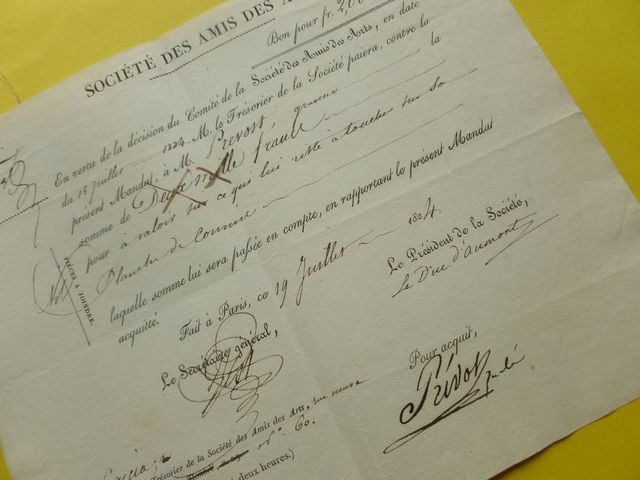 SOCIÉTÉ DES AMIS DES A
Bon pour fr.
En vertu de la décision du Comité de la Société des Amis des Arts, en date
du 15 Juillet 1824 M. le Trésorier de la Société paiera, contre la
présent Mandat, à M. Prevost graveur la
somme de Deux mille francs
pour à valoir sur ce qui lui reste à toucher sur sa
Planche de Corinne
laquelle somme lui sera passée en compte, en rapportant le présent Mandat
acquitté.
PIÈCES A JOINDRE.
Fait à Paris, ce 19 Juillet 1824.
Le Secrétaire général,
Le Président de la Société,
Le Duc d'Aumont
Pour acquit,
Prévost
Trésorier de la Société des Amis des Arts, rue
n.° 60.
deux heures.)